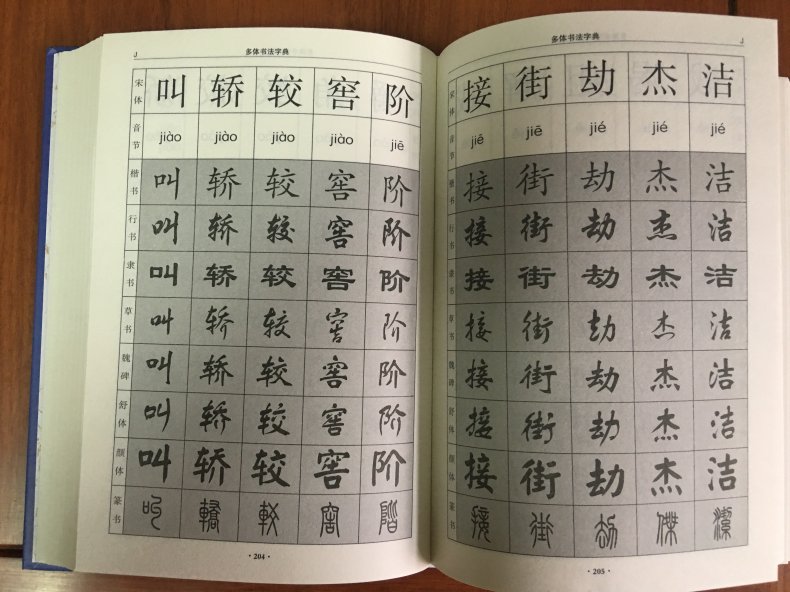 J 多体书法字典
宋体 叫 轿 较 窖 阶
音节 jiào jiào jiào jiào jiē
楷书 叫 轿 较 窖 阶
行书 叫 轿 较 窖 阶
隶书 叫 轿 较 窖 阶
草书 叫 轿 较 窖 阶
魏碑 叫 轿 较 窖 阶
舒体 叫 轿 较 窖 阶
颜体 叫 轿 较 窖 阶
篆书 叫 轎 較 窖 階
·204·
多体书法字典 J
宋体 接 街 劫 杰 洁
音节 jiē jiē jié jié jié
楷书 接 街 劫 杰 洁
行书 接 街 劫 杰 洁
隶书 接 街 劫 杰 洁
草书 接 街 劫 杰 洁
魏碑 接 街 劫 杰 洁
舒体 接 街 劫 杰 洁
颜体 接 街 劫 杰 洁
篆书 接 街 劫 傑 潔
·205·